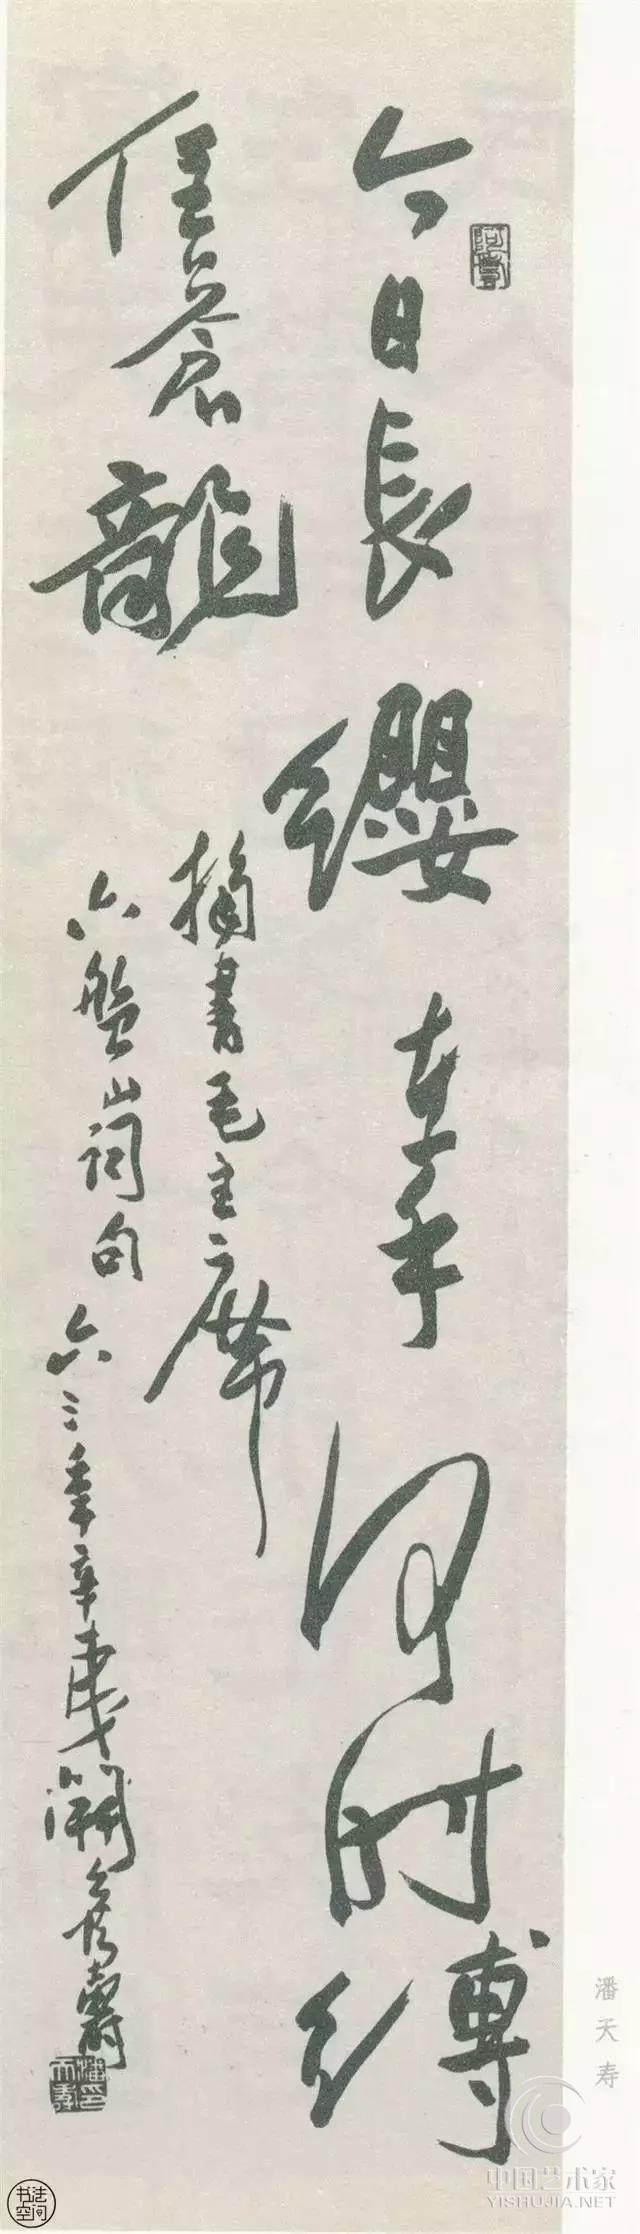 阿壽
今日長纓在手何时縛
住蒼龍
摘書毛主席
六盤山詞句六三年辛夷開候壽
潘天壽印
潘天寿
中国艺术家
YISHUJIA.NET
书法空间